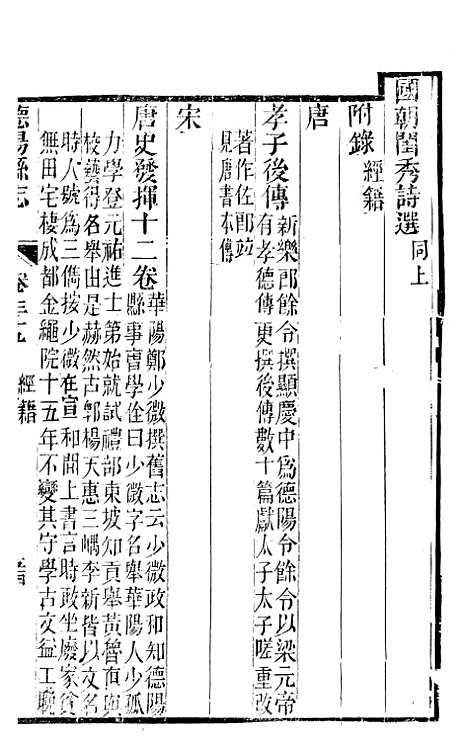 國朝閨秀詩選同上
附錄經籍
唐
孝子後傳新樂郎餘令撰顯慶中爲德陽令餘令以梁元帝
有孝德傳更撰後傳數十篇獻太子太子嗟重改
著作佐郎並
見唐書本傳
宋
唐史發揮十二卷華陽鄭少微撰舊志云少微政和知德陽
縣事曹學佺曰少微字名舉華陽人少孤
力學登元祐進士第始就試禮部東坡知貢舉黃魯直與
校藝得名舉由是赫然古郭楊天惠三嵎李新皆以文名
時人號爲三儁按少微在宣和間上書言時政坐廢家貧
無田宅棲成都金繩院十五年不變其守學古文益工晚
德陽縣志
卷三十
經籍